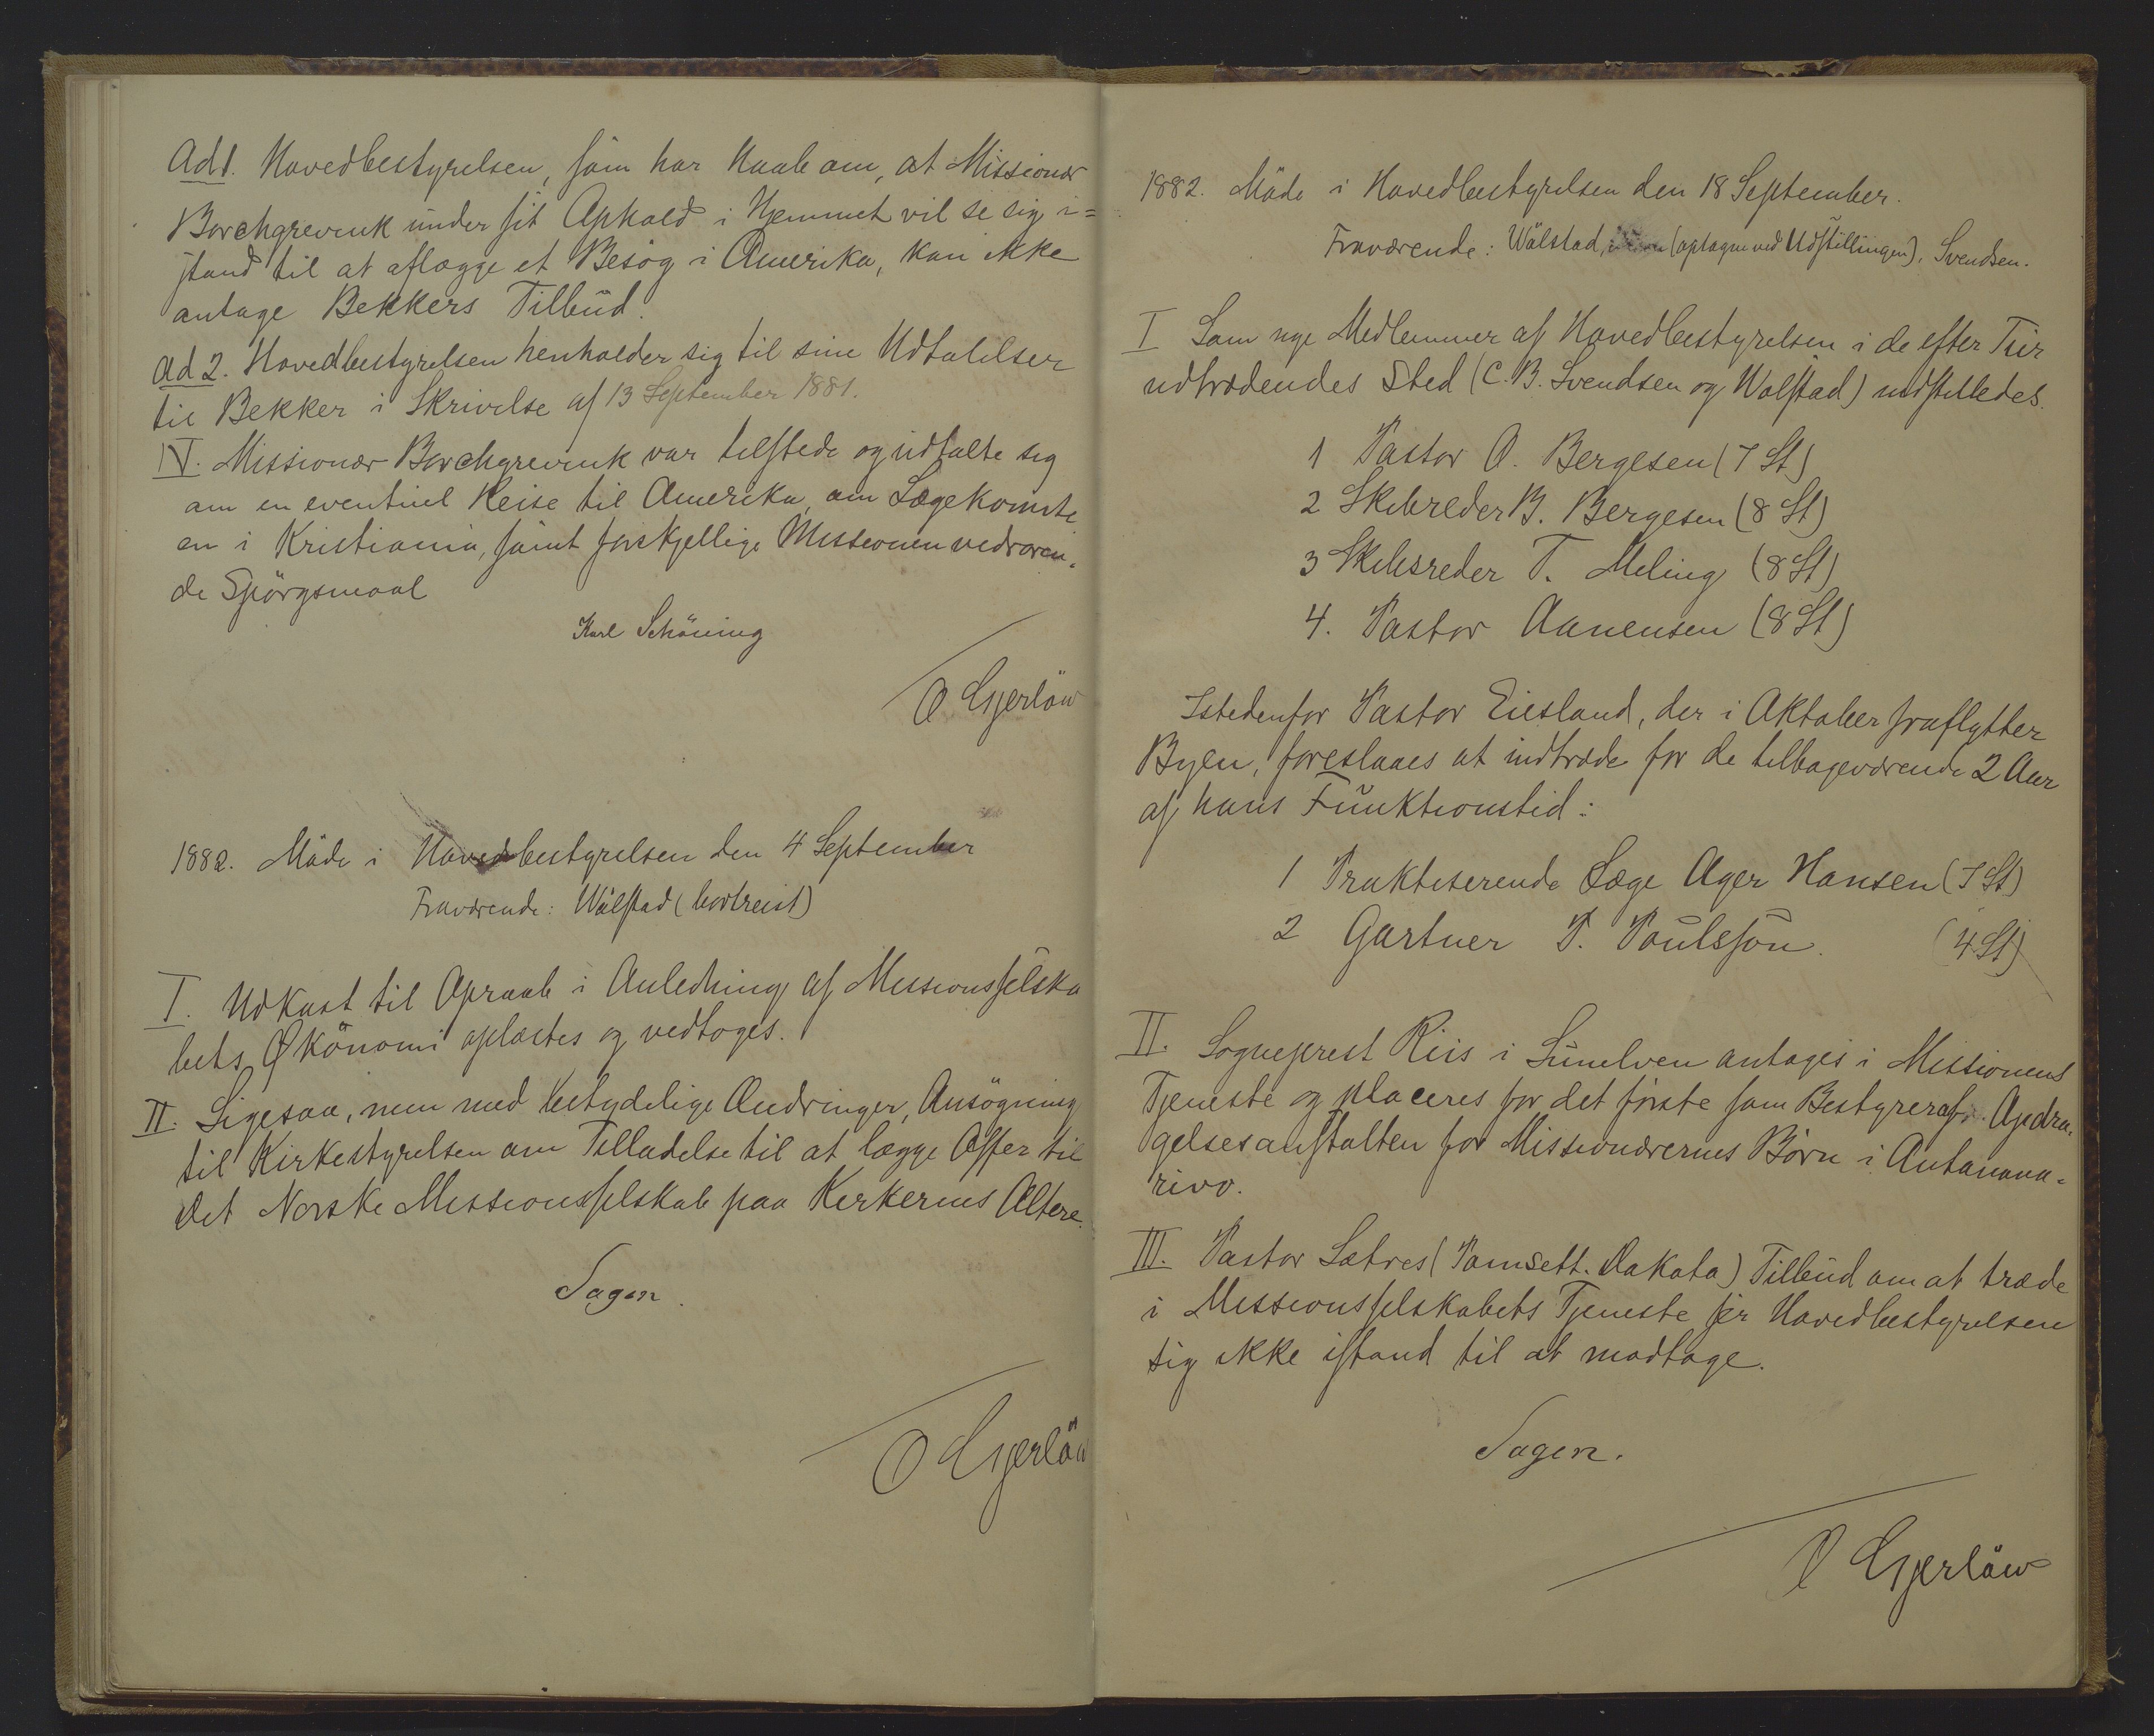 Ad 1. Hovedbestyrelsen, som har Haab om, at Missionær
Borchgrevink under sit Ophold i Hjemmet vil se sig i=
stand til at aflægge et Besög i Amerika, kan ikke
antage Bekkers Tilbud.
Ad 2. Hovedbestyrelsen henholder sig til sine Udtalelser
til Bekker i Skrivelse af 13 September 1881.
IV. Missionær Borchgrevink var tilstede og udtalte sig
om en eventuel Reise til Amerika, om Lægekomite
en i Kristiania, samt forskjellige Missionen vedrören-
de Spörgsmaal
Karl Schöning
O Gjerlöw
1882. Möde i Hovedbestyrelsen den 4 September
Fraværende: Wålstad (bortreist)
I. Udkast til Opraab i Anledning af Missionsselska
bets Økönomi oplæstes og vedtoges.
II. Ligesaa, men med betydelige Ændringer, Ansögning
til Kirkestyrelsen om Tilladelse til at lægge Offer til
det Norske Missionsselskab paa Kirkernes Altere.
Sagen.
O Gjerlöw
1882. Möde i Hovedbestyrelsen den 18 September.
Fraværende: Wålstad, (optagne ved Udstillingen), Svendsen.
I Som nye Medlemmer af Hovedbestyrelsen i de efter Tur
udtrædendes Sted (C. B. Svendsen og Walstad) indstilledes.
1 Pastor O. Bergesen (7 St)
2 Skibreder B. Bergesen (8 St)
3 Skibsreder T. Meling (8 St)
4. Pastor Aanensen (8 St)
Istedenfor Pastor Eiesland, der i Oktober fraflytter
Byen, foreslaaes at indtræde for de tilbageværende 2 Aar
af hans Funktionstid:
1 Praktiserende Læge Ager Hansen (7 St)
2 Gartner P. Poulssön. (4 St)
II. Sogneprest Riis i Sunelven antages i Missionens
Tjeneste og placeres for det förste som Bestyrer af Opdra-
gelsesanstalten for Missionærernes Börn i Antanana-
rivo.
III. Pastor Sætres (Pamsett. Dakota) Tilbud om at træde
i Missionsselskabets Tjeneste ser Hovedbestyrelsen
sig ikke istand til at modtage.
Sagen.
O Gjerlöw